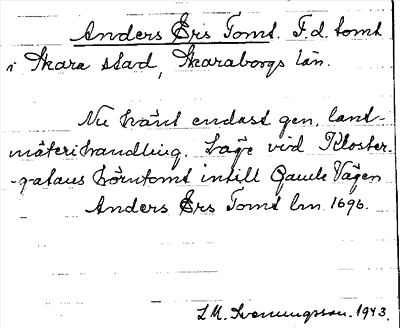 Anders Ers Tomt. F.d. tomt
i Skara stad, Skaraborgs län.
Nu känt endast gen. lant-
mäterihandling. Läge vid Kloster-
-gatans hörntomt intill Gamle Vägen
Anders Ers Tomt lm. 1696.
L.M. Svenungsson. 1943.